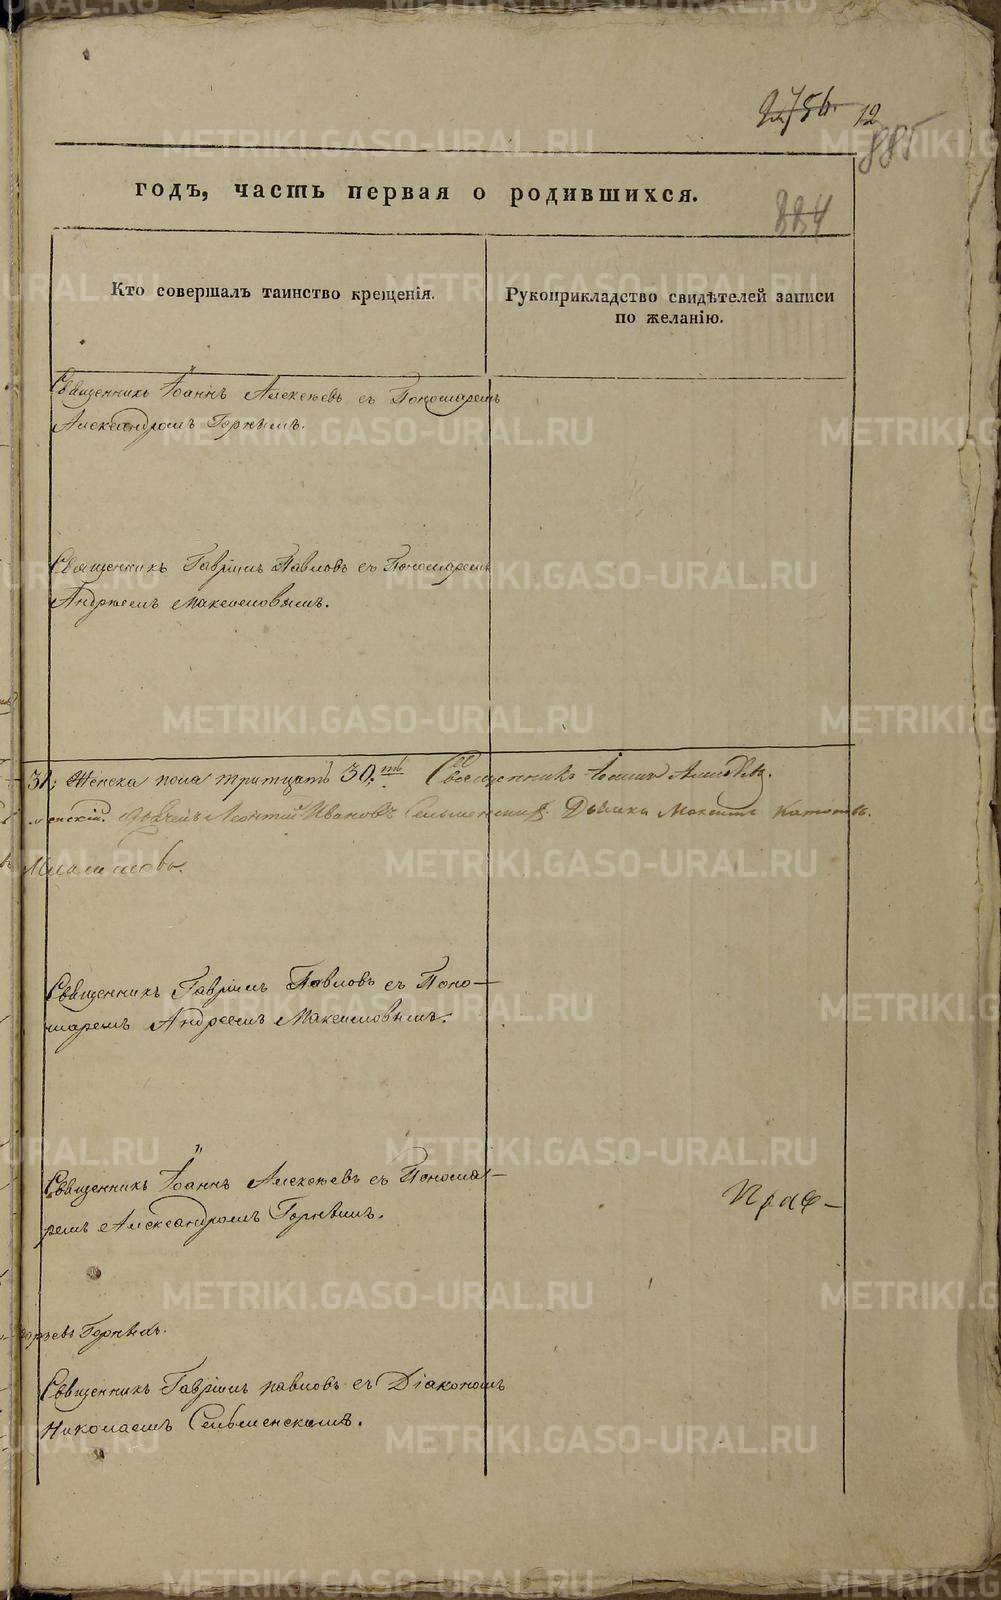 12
885
884
годъ, часть первая о родившихся.
Кто совершалъ таинство крещенія.
Рукоприкладство свидѣтелей записи
по желанію.
Священникъ Іоаннъ Алексѣевъ съ Пономаремъ
Александромъ Горнымъ.
Священникъ Гавріилъ Павловъ съ Пономаремъ
Андреемъ Максимовымъ.
31; Женска пола тритцать 30. Священникъ Іоаннъ
Леонтій Ивановъ Сельменскій. Дьячикъ Максимъ
Священникъ Гавріилъ Павловъ съ Поно-
маремъ Андреемъ Максимовымъ.
Священникъ Іоаннъ Алексѣевъ съ Понома-
ремъ Александромъ Горнымъ.
Праф-
Священникъ Гавріилъ павловъ съ Діакономъ
Николаемъ Сельменскимъ.
METRIKI.GASO-URAL.RU